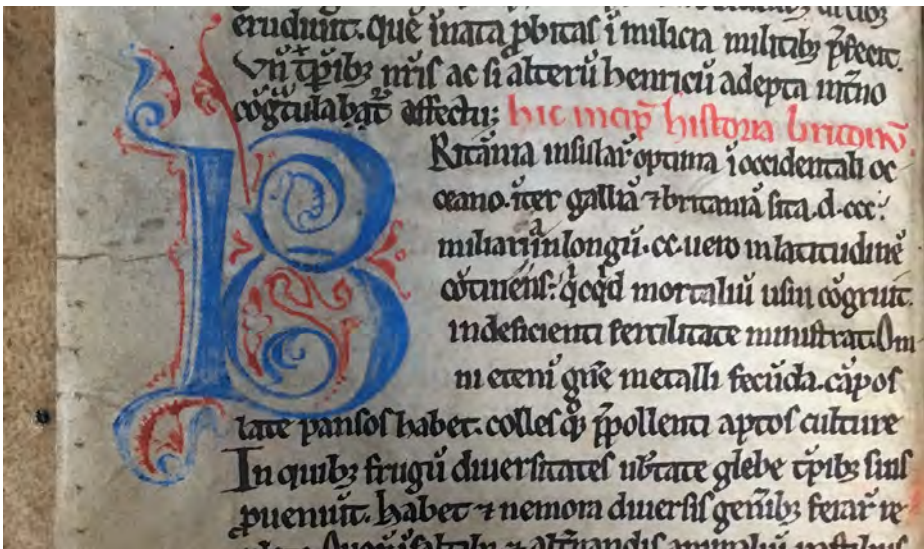 erudiuit. que inata ꝓbitas ĩ milicia militibꝫ p̃fecit.
Vñ tp̃ibꝫ nr̃is ac si alterũ henricũ adepta
cõgͣtulabat͛ affectu;
hic incip̃ historia britonũ.
BRitãnia insulaꝝ optima ĩ occidentali oc
ceano. iͭer galliã ⁊ britaniã sita. d. ccc.
miliariͣ in longũ. cc. uero in latitudinẽ
cõtinens: qͥcqͥd mortaliũ usui cõgruit.
indeficienti fertilitate ministrat. Om
ni etenĩ gñe metalli fecũda. cãpos
late pansos habet. colles qͦꝫ p̃pollenti aptos culture
In quibꝫ frugũ diuersitates ub̃tate glebe tp̃ibꝫ suis
ꝓueniũt. habet ⁊ nemora diuersis geñibꝫ feraꝝ re